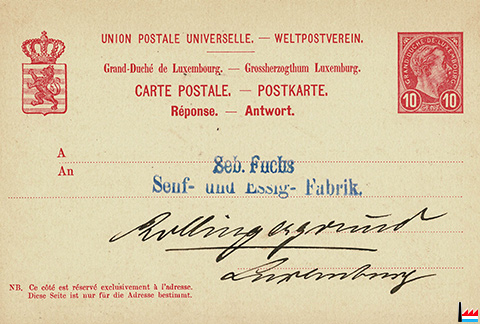 UNION POSTALE UNIVERSELLE. — WELTPOSTVEREIN.
Grand-Duché de Luxembourg. — Grossherzogthum Luxemburg.
CARTE POSTALE. — POSTKARTE.
Réponse. — Antwort.
GRAND-DUCHÉ DE LUXEMBOURG
10 10
A
An
Seb. Fuchs
Senf- und Essig- Fabrik.
Rollingergrund
Luxemburg
NB. Ce côté est réservé exclusivement à l'adresse.
Diese Seite ist nur für die Adresse bestimmt.